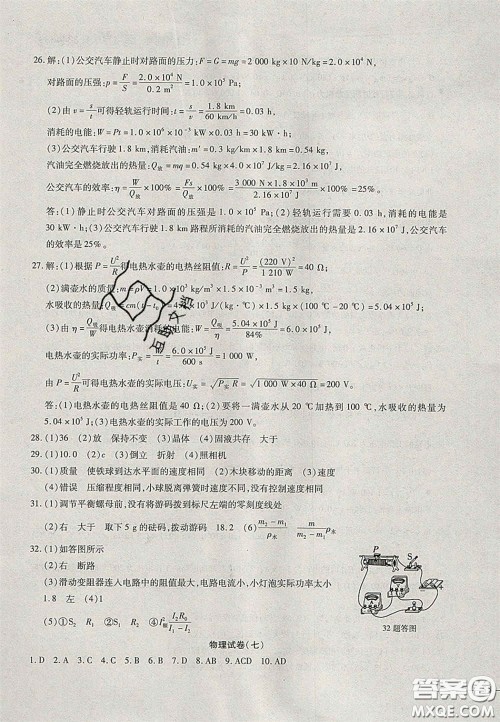 26. 解:(1)公交汽车静止时对路面的压力:F=G=mg=2 000 kg×10 N/kg=2.0×10⁴ N
对路面的压强:p=F/S=2.0×10⁴ N/0.2 m²=1.0×10⁵ Pa;
(2)由v=s/t可得轻轨运行时间:t=s/v=1.8 km/60 km/h=0.03 h,
消耗的电能:W=Pt=1.0×10⁶×10⁻³ kW×0.03 h=30 kW·h;
(3)公交汽车行驶1.8 km,消耗汽油:m'=0.3 kg/km×1.8 km=0.54 kg
汽油完全燃烧放出的热量:Q放=mq=0.54 kg×4.0×10⁷ J/kg=2.16×10⁷ J,
公交汽车的效率:η=W/Q放×100%=Fs/Q放×100%=3 000 N×1.8×10³ m/2.16×10⁷ J×100%=25%。
答:(1)静止时公交汽车对路面的压强是1.0×10⁵ Pa;(2)轻轨运行需要0.03 h,消耗的电能是
30 kW·h;(3)公交汽车行驶1.8 km路程所消耗汽油完全燃烧放出的热量是2.16×10⁷ J,公交汽车
的效率是25%。
27. 解:(1)根据P=U²/R得电热水壶的电热丝阻值:R=U²/P=(220 V)²/1 210 W=40 Ω;
(2)满壶水的质量:m=ρV=1.0×10³ kg/m³×1.5×10⁻³ m³=1.5 kg,
水吸收的热量:Q吸=cm(t-t₀)=4.2×10³ J/(kg·℃)×1.5 kg×(100℃-20℃)=5.04×10⁵ J;
(3)由η=Q吸/W得电热水壶消耗的电能:W=Q吸/η=5.04×10⁵ J/84%=6.0×10⁵ J,
电热水壶的实际功率:P实=W/t=6.0×10⁵ J/600 s=1 000 W,
由P=U²/R可得电热水壶的实际电压:U实=√P实R=√1 000 W×40 Ω=200 V。
答:(1)电热水壶的电热丝阻值是40 Ω;(2)要将一满壶水从20℃加热至100℃,水吸收的热量为
5.04×10⁵ J;(3)电热水壶的实际工作的电压为200 V。
28. (1)36 (2)放 保持不变 (3)晶体 (4)固液共存 大于
29. (1)10.0 (2)c (3)倒立 折射 (4)照相机
30. (1)质量 使铁球到达水平面的速度相同 (2)木块移动的距离
(4)错误 压缩程度相同,小球脱离弹簧时速度相同但动能不相同
31. (1)调节平衡螺母前,没有将游码拨到标尺左端的零刻度线处
(2)右 大于 取下5 g的砝码,拨动游码 18.2 (6)m₂-m₁/ρ水 m₂-m₁/m₂-m₃ρ水
32. (1)如答图所示
(2)右 断路
(3)滑动变阻器连入电路中的阻值最大,电路电流小,小灯泡实际功率太小
1.8 左 (4)1
(5)①S₂ R₁ ②S₁ R₁ ③I₂R₀/I₁-I₂
P
S
32题答图
物理试卷(七)
1. D 2. A 3. C 4. C 5. B 6. D 7. D 8. AB 9. ACD 10. AD
答案圈
MXQE.COM